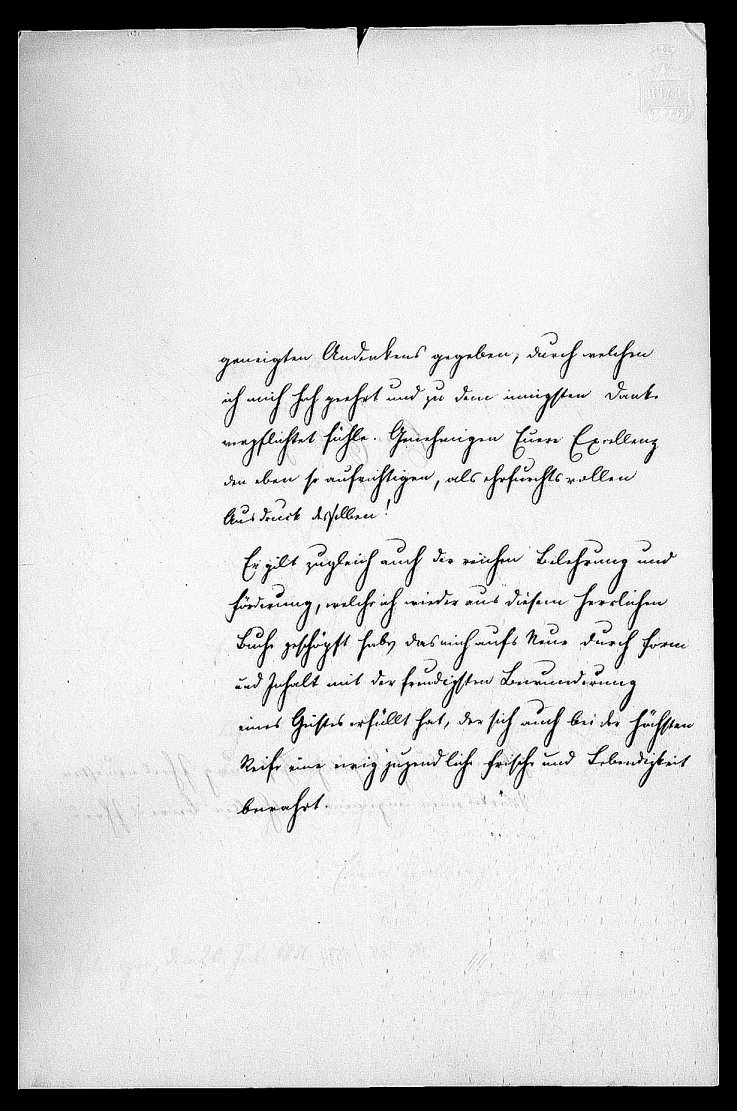 geneigten Andenkens gegeben, durch welchen
ich mich hoch geehrt und zu dem innigsten Dank
verpflichtet fühle. Genehmigen Euere Excellenz
den eben so aufrichtigen, als ehrfurchtsvollen
Ausdruck desselben!
Er gilt zugleich auch der reichen Belehrung und
Förderung, welche ich wieder aus diesem herrlichen
Buche geschöpft habe, das mich aufs Neue durch Form
und Inhalt mit der freudigsten Bewunderung
eines Geistes erfüllt hat, der sich auch bei der höchsten
Reife eine ewig jugendliche Frische und Lebendigkeit
bewahrt.